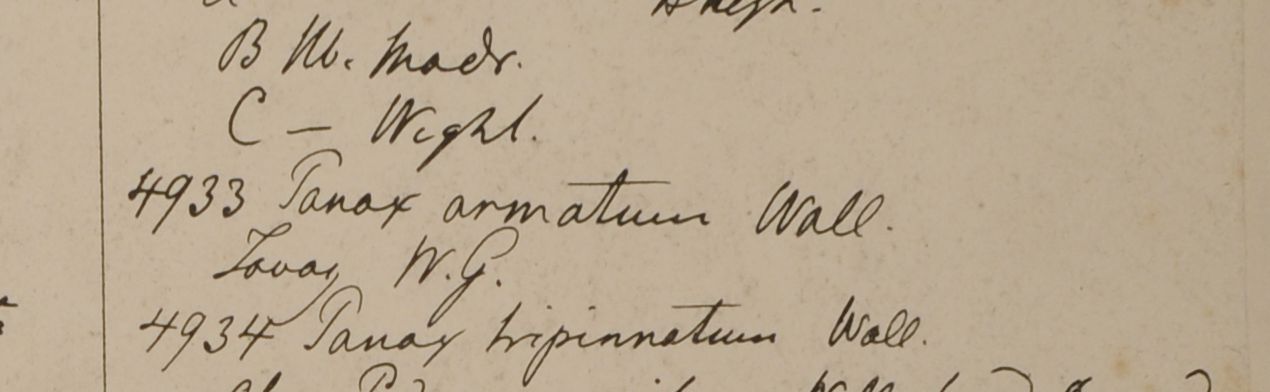 B Hb. Madr.
C — Wight.
4933 Panax armatum Wall.
Tavoy W.G.
4934 Panax tripinnatum Wall.